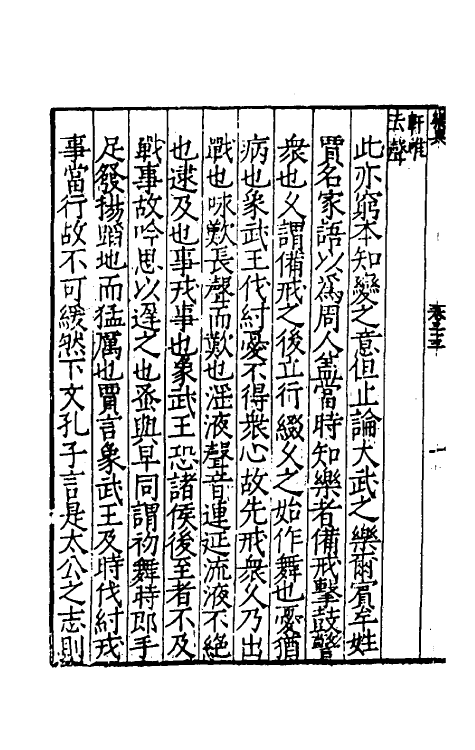 此亦窮本知變之意但止論大武之樂爾賔牟姓
賈名家語以爲周人盖當時知樂者備戒擊鼓警
衆也乆謂備戒之後立行綴乆之始作舞也憂猶
病也象武王伐紂憂不得衆心故先戒衆乆乃出
戰也咏歎長聲而歎也淫液聲音連延流液不絶
也逮及也事戎事也象武王恐諸侯後至者不及
戰事故吟思以遲之也蚤與早同謂初舞時即手
足發揚蹈地而猛厲也賈言象武王及時伐紂戎
事當行故不可緩然下文孔子言是太公之志則